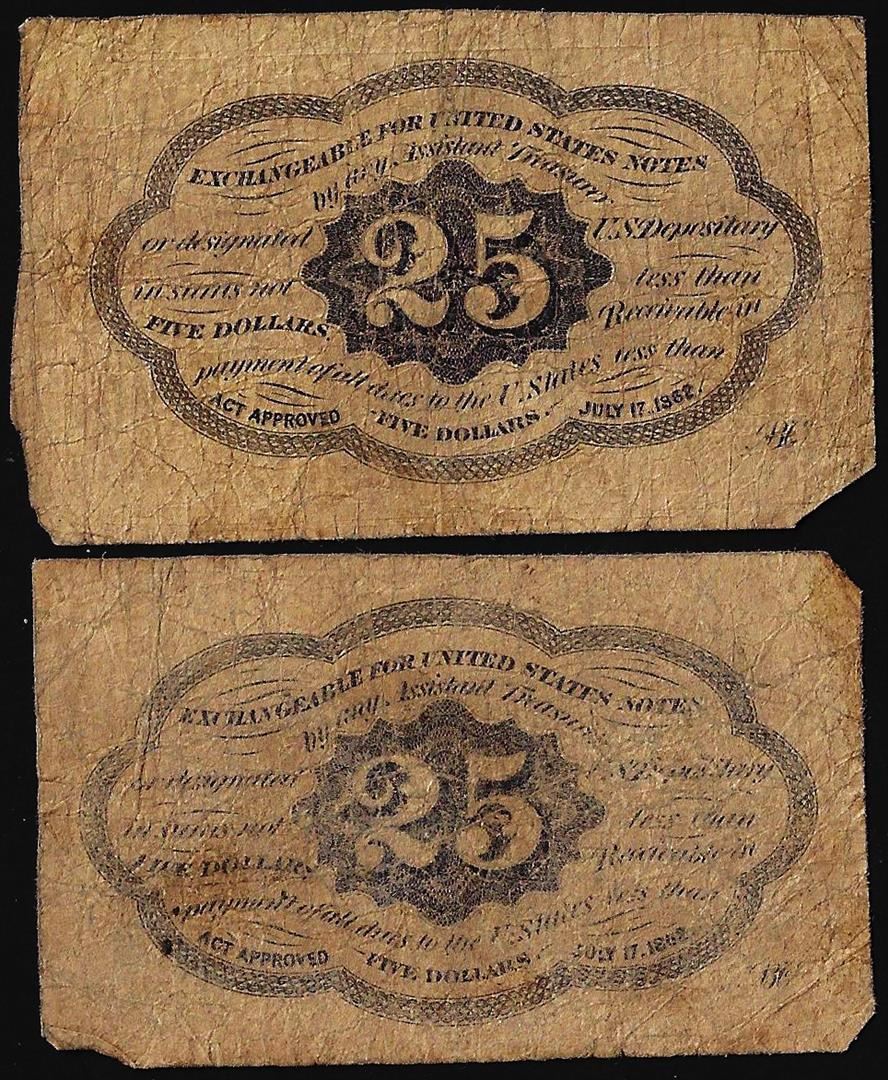 EXCHANGEABLE FOR UNITED STATES NOTES
by any Assistant Treasurer
or designated 25 U.S. Depositary
in sums not less than
FIVE DOLLARS. Receivable in
payment of all dues to the U. States less than
ACT APPROVED FIVE DOLLARS. JULY 17. 1862.
EXCHANGEABLE FOR UNITED STATES NOTES
by any Assistant Treasurer
or designated 25 U.S. Depositary
in sums not less than
FIVE DOLLARS Receivable in
payment of all dues to the U. States less than
ACT APPROVED FIVE DOLLARS. JULY 17. 1862.